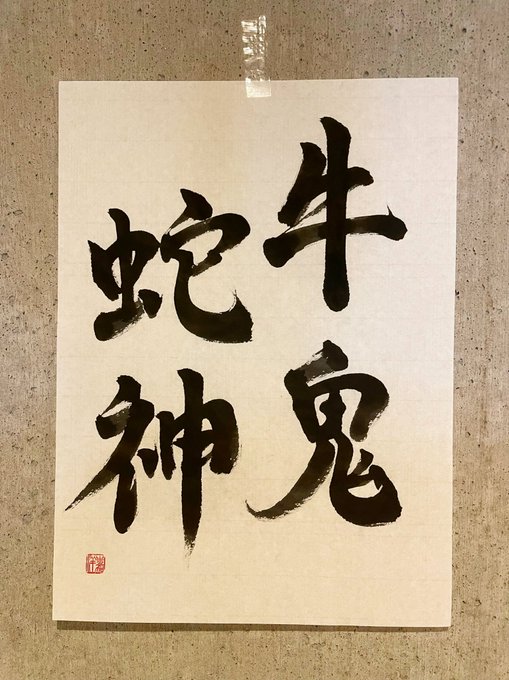 牛鬼
蛇神